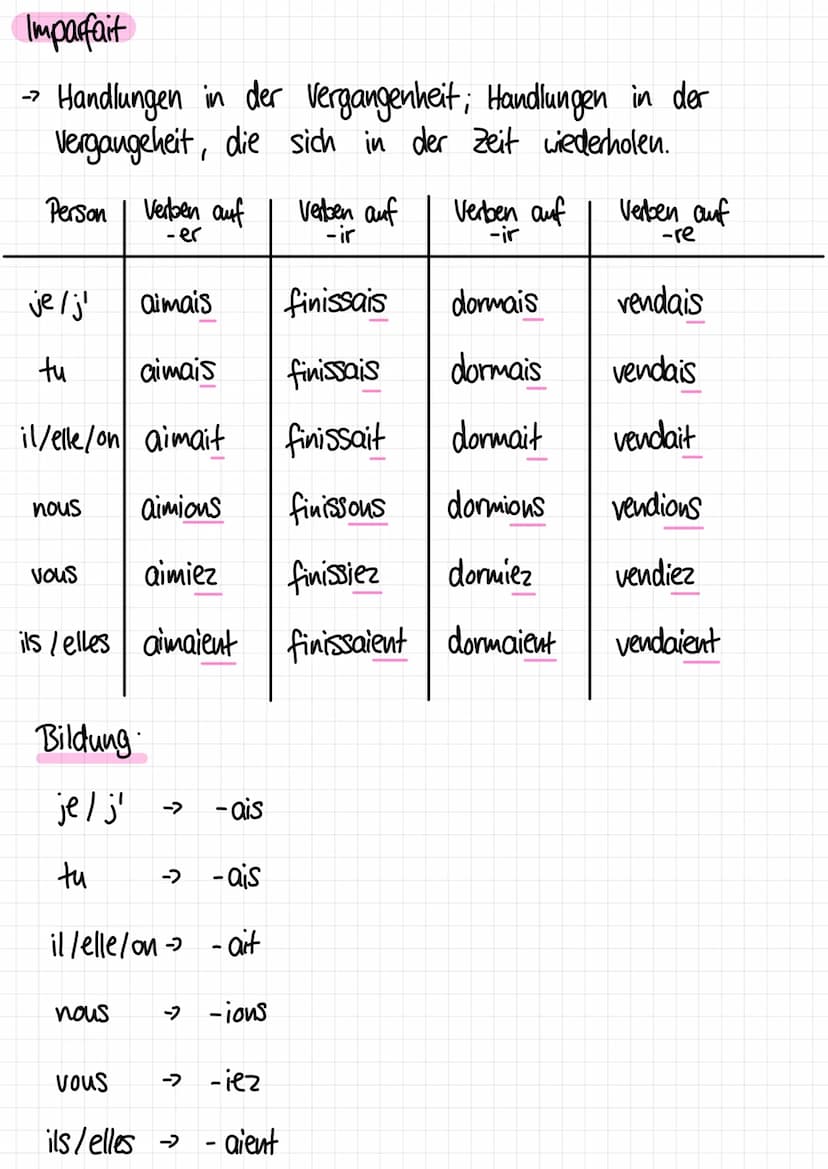 Imparfait
→ Handlungen in der Vergangenheit; Handlungen in der
Vergangeheit, die sich in der Zeit wiederholen.
Person Verben auf -er Verben auf -ir Verben auf -ir Verben auf -re
je/j' aimais finissais dormais vendais
tu aimais finissais dormais vendais
il/elle/on aimait finissait dormait vendait
nous aimions finissons dormions vendions
vous aimiez finissiez dormiez vendiez
ils/elles aimaient finissaient dormaient vendaient
Bildung:
je/j' → -ais
tu → -ais
il/elle/on → -ait
nous → -ions
vous → -iez
ils/elles → -aient